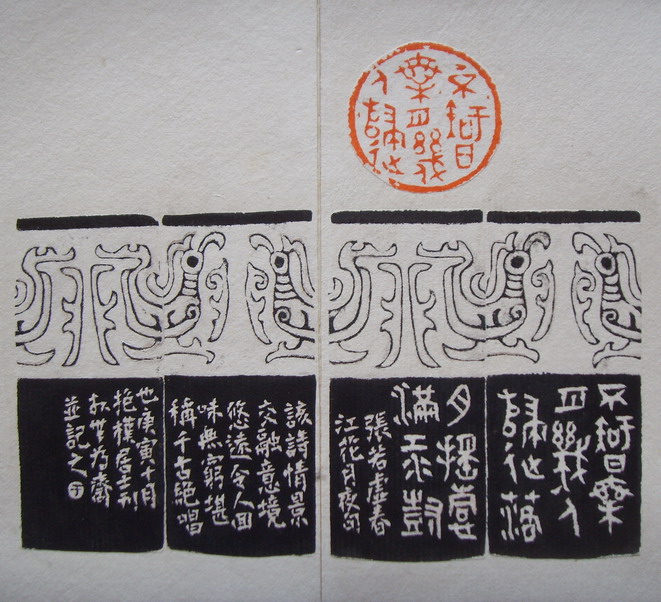 不知
乘月幾
人歸
不知乘
月幾人
歸落
月搖情
滿江樹
張若虛春
江花月夜句
該詩情景
交融意境
悠遠令人回
味無窮堪
稱千古絕唱
也庚寅十月
抱樸居士刊
於為齋
並記之